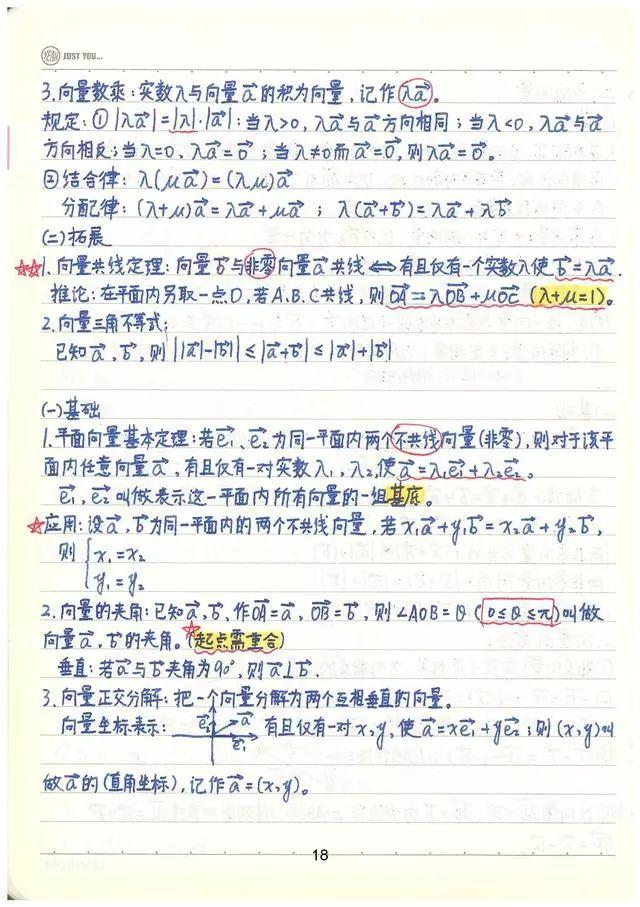 YEAH JUST YOU...
3.向量数乘:实数λ与向量a⃗的积为向量,记作λa⃗。
规定:①|λa⃗|=|λ|·|a⃗|:当λ>0,λa⃗与a⃗方向相同;当λ<0,λa⃗与a⃗
方向相反;当λ=0,λa⃗=0⃗;当λ≠0而a⃗=0⃗,则λa⃗=0⃗。
②结合律:λ(μa⃗)=(λμ)a⃗
分配律:(λ+μ)a⃗=λa⃗+μa⃗ ; λ(a⃗+b⃗)=λa⃗+λb⃗
(二)拓展
☆☆1.向量共线定理:向量b⃗与非零向量a⃗共线⟺有且仅有一个实数λ使b⃗=λa⃗.
推论:在平面内另取一点O,若A.B.C共线,则OA⃗=λOB⃗+μOC⃗(λ+μ=1)。
2.向量三角不等式:
已知a⃗,b⃗,则||a⃗|-|b⃗||≤|a⃗+b⃗|≤|a⃗|+|b⃗|
(一)基础
1.平面向量基本定理:若e⃗₁、e⃗₂为同一平面内两个不共线向量(非零),则对于该平
面内任意向量a⃗,有且仅有一对实数λ₁,λ₂,使a⃗=λ₁e⃗₁+λ₂e⃗₂。
e⃗₁,e⃗₂叫做表示这一平面内所有向量的一组基底。
☆应用:设a⃗,b⃗为同一平面内的两个不共线向量,若x₁a⃗+y₁b⃗=x₂a⃗+y₂b⃗,
则{x₁=x₂
y₁=y₂
2.向量的夹角:已知a⃗,b⃗,作OA⃗=a⃗,OB⃗=b⃗,则∠AOB=θ(0≤θ≤π)叫做
向量a⃗,b⃗的夹角。☆(起点需重合)
垂直:若a⃗与b⃗夹角为90°,则a⃗⊥b⃗.
3.向量正交分解:把一个向量分解为两个互相垂直的向量。
向量坐标表示: e⃗₂ a⃗ e⃗₁ 有且仅有一对x,y,使a⃗=xe⃗₁+ye⃗₂;则(x,y)叫
做a⃗的(直角坐标),记作a⃗=(x,y)。
18